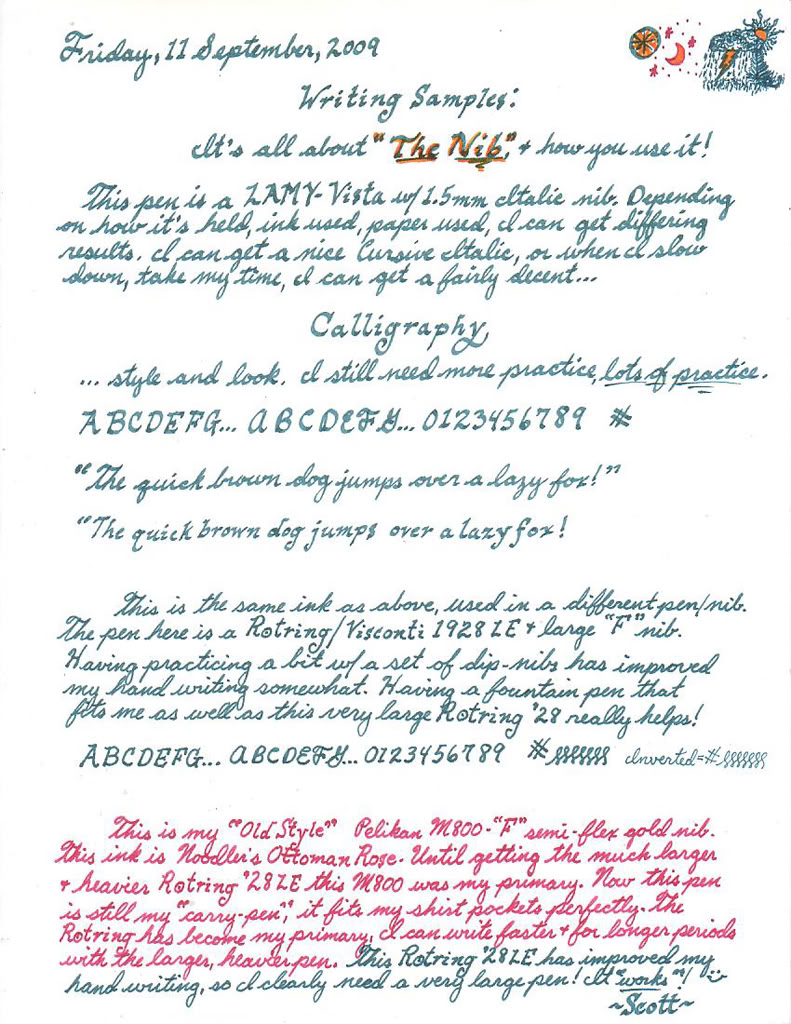 Friday, 11 September, 2009
Writing Samples:
It's all about "The Nib", + how you use it!
This pen is a LAMY-Vista w/ 1.5mm Italic nib. Depending
on how it's held, ink used, paper used, I can get differing
results. I can get a nice Cursive Italic, or when I slow
down, take my time, I can get a fairly decent...
Calligraphy,
... style and look. I still need more practice, lots of practice.
ABCDEFG... ABCDEFG... 0123456789 #
"The quick brown dog jumps over a lazy fox!"
"The quick brown dog jumps over a lazy fox!
This is the same ink as above, used in a different pen/nib.
The pen here is a Rotring/Visconti 1928 LE + large "F" nib.
Having practicing a bit w/ a set of dip-nibs has improved
my hand writing somewhat. Having a fountain pen that
fits me as well as this very large Rotring '28 really helps!
ABCDEFG... ABCDEFG... 0123456789 # Inverted=#
This is my "Old Style" Pelikan M800-"F" semi-flex gold nib.
This ink is Noodler's Ottoman Rose. Until getting the much larger
+ heavier Rotring '28 LE this M800 was my primary. Now this pen
is still my "carry-pen", it fits my shirt pockets perfectly. The
Rotring has become my primary, I can write faster + for longer periods
with the larger, heavier pen. This Rotring '28 LE has improved my
hand writing, so I clearly need a very large pen! It "works"!
~Scott~